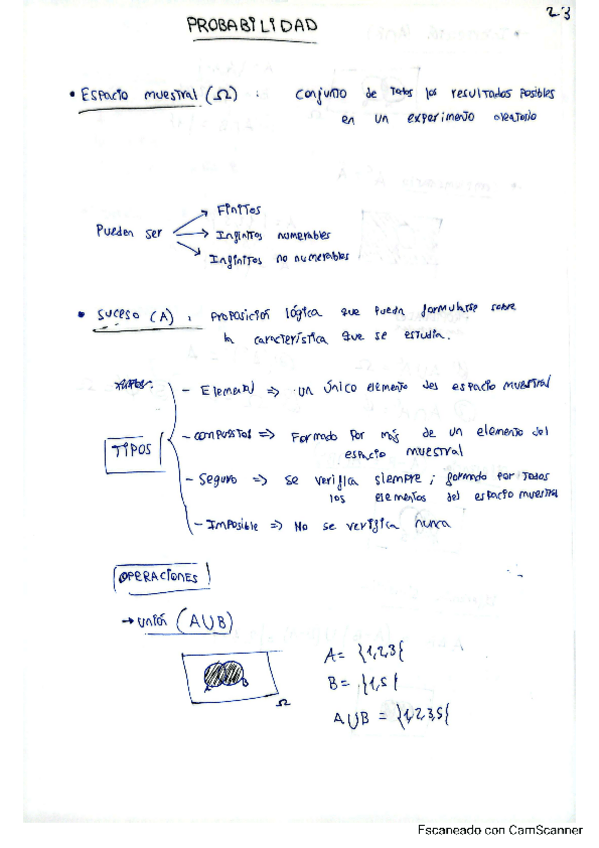 23
PROBABILIDAD
• Espacio muestral (Ω) : conjunto de todos los resultados posibles
en un experimento aleatorio
Pueden ser → Finitos
→ Infinitos numerables
→ Infinitos no numerables
• Suceso (A) : Proposición lógica que pueda formularse sobre
la característica que se estudia.
TIPOS
- Elemental => un único elemento del espacio muestral
- compuestos => Formado por más de un elemento del
espacio muestral
- Seguro => se verifica siempre ; formado por todos
los elementos del espacio muestral
- Imposible => No se verifica nunca
OPERACIONES
→ unión (A∪B)
A B
Ω
A= }1,2,3{
B= }1,5{
A∪B = }1,2,3,5{
Escaneado con CamScanner